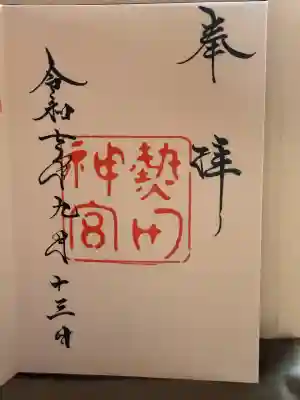 奉拝
熱田神宮
令和七年九月十三日